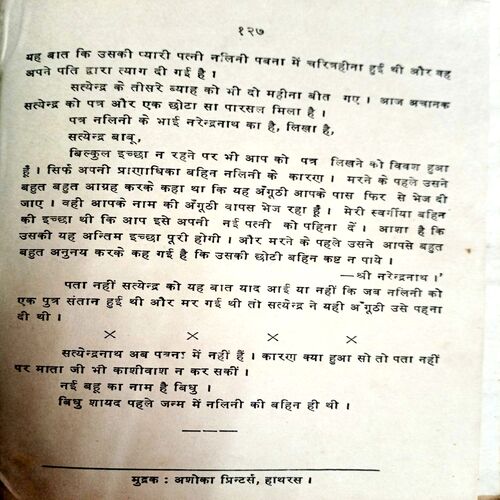 १२७
यह बात कि उसकी प्यारी पत्नी नलिनी पबना में चरित्रहीना हुई थी और वह
अपने पति द्वारा त्याग दी गई है ।
सत्येन्द्र के तीसरे ब्याह को भी दो महीना बीत गए । आज अचानक
सत्येन्द्र को पत्र और एक छोटा सा पारसल मिला है ।
पत्र नलिनी के भाई नरेन्द्रनाथ का है, लिखा है,
सत्येन्द्र बाबू,
बिल्कुल इच्छा न रहने पर भी आप को पत्र लिखने को विवश हुआ
हूँ । सिर्फ अपनी प्राणाधिका बहिन नलिनी के कारण । मरने के पहले उसने
बहुत बहुत आग्रह करके कहा था कि यह अँगूठी आपके पास फिर से भेज दी
जाए । वही आपके नाम की अँगूठी वापस भेज रहा हूँ । मेरी स्वर्गीया बहिन
की इच्छा थी कि आप इसे अपनी नई पत्नी को पहिना दें । आशा है कि
उसकी यह अन्तिम इच्छा पूरी होगी । और मरने के पहले उसने आपसे बहुत
बहुत अनुनय करके कह गई है कि उसकी छोटी बहिन कष्ट न पाये ।
—श्री नरेन्द्रनाथ ।'
पता नहीं सत्येन्द्र को यह बात याद आई या नहीं कि जब नलिनी को
एक पुत्र संतान हुई थी और मर गई थी तो सत्येन्द्र ने यही अँगूठी उसे पहना
दी थी ।
× × × ×
सत्येन्द्रनाथ अब पबना में नहीं हैं । कारण क्या हुआ सो तो पता नहीं
पर माता जी भी काशीवाश न कर सकीं ।
नई बहू का नाम है बिधु ।
बिधु शायद पहले जन्म में नलिनी की बहिन ही थी ।
मुद्रक : अशोका प्रिन्टर्स, हाथरस ।